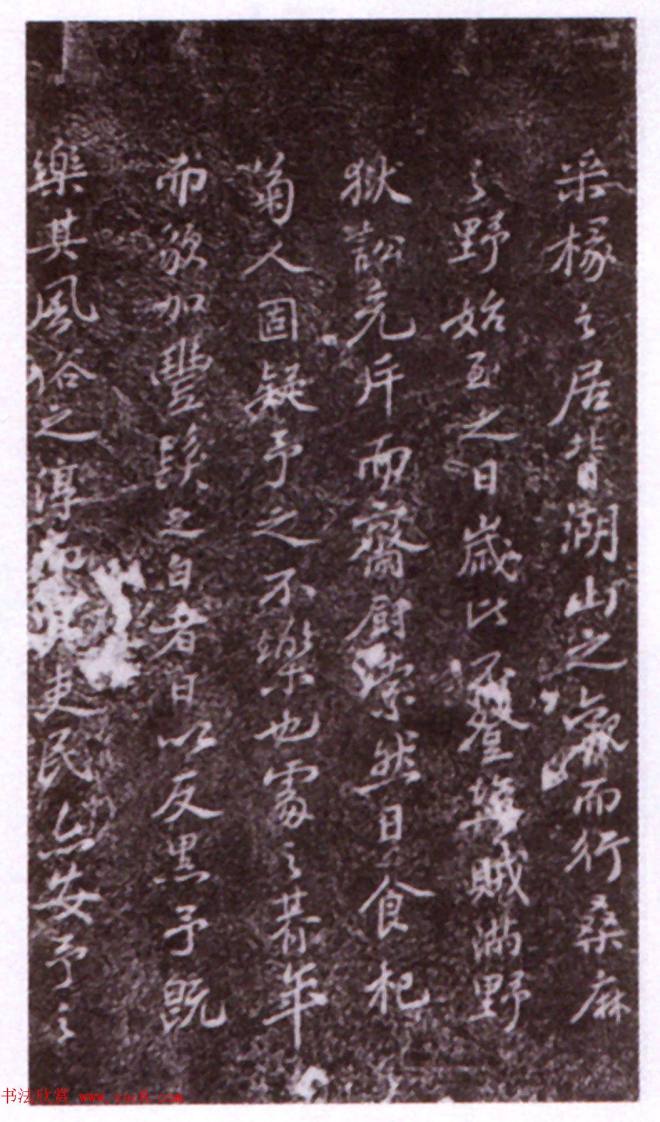 采椽之居背湖山之觀而行桑麻
之野始至之日歲比不登盜賊滿野
獄訟充斥而齋厨索然日食杞
菊人固疑予之不樂也處之朞年
而貌加豐髮之白者日以反黑予既
樂其風俗之淳而其吏民亦安予之
书法欣赏